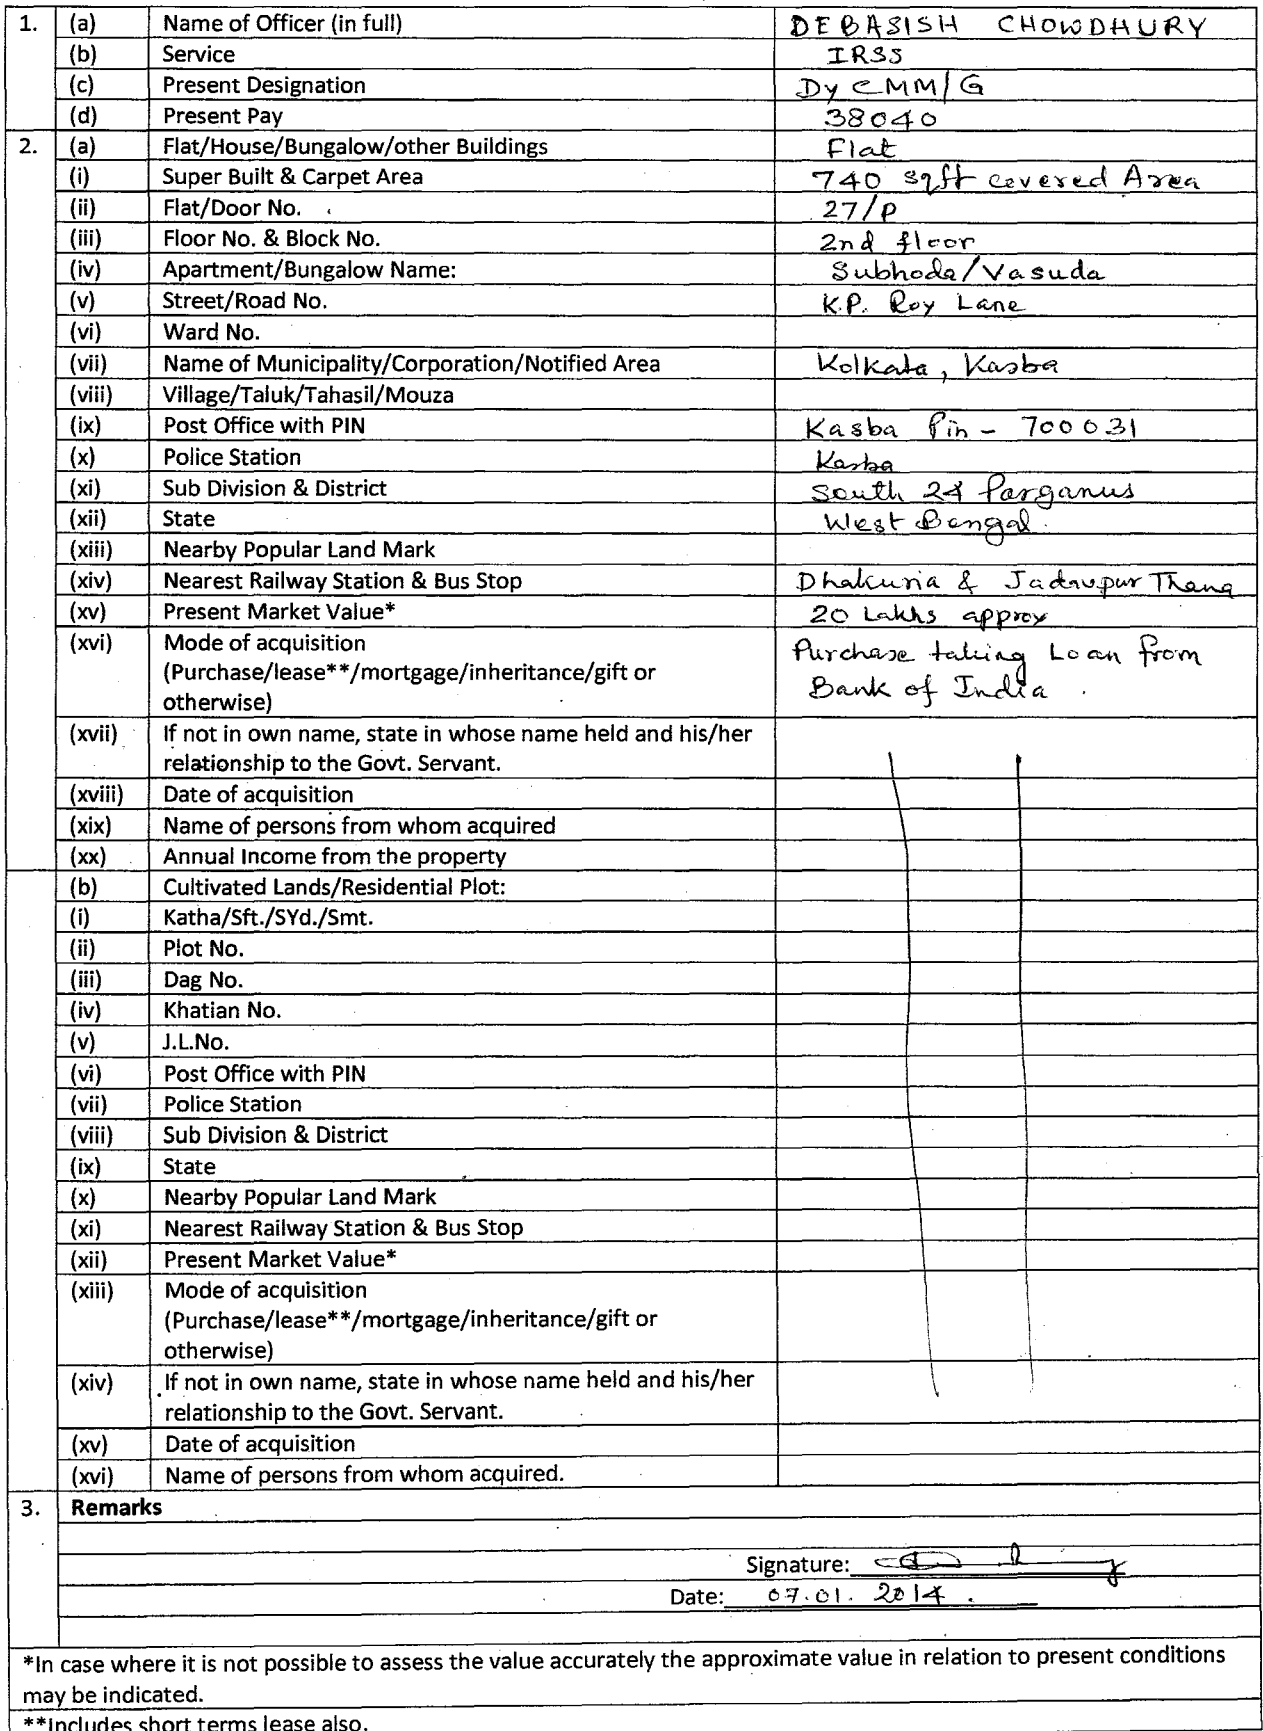 1. (a) Name of Officer (in full) DEBASISH CHOWDHURY
(b) Service IRSS
(c) Present Designation Dy CMM/G
(d) Present Pay 38040
2. (a) Flat/House/Bungalow/other Buildings Flat
(i) Super Built & Carpet Area 740 sqft covered Area
(ii) Flat/Door No. 27/P
(iii) Floor No. & Block No. 2nd floor
(iv) Apartment/Bungalow Name: Subhoda/Vasuda
(v) Street/Road No. K.P. Roy Lane
(vi) Ward No.
(vii) Name of Municipality/Corporation/Notified Area Kolkata, Kasba
(viii) Village/Taluk/Tahasil/Mouza
(ix) Post Office with PIN Kasba Pin - 700031
(x) Police Station Kasba
(xi) Sub Division & District South 24 Parganus
(xii) State West Bengal.
(xiii) Nearby Popular Land Mark
(xiv) Nearest Railway Station & Bus Stop Dhakuria & Jadavpur Thana
(xv) Present Market Value* 20 Lakhs approx
(xvi) Mode of acquisition Purchase taking Loan from
(Purchase/lease**/mortgage/inheritance/gift or Bank of India.
otherwise)
(xvii) If not in own name, state in whose name held and his/her
relationship to the Govt. Servant.
(xviii) Date of acquisition
(xix) Name of persons from whom acquired
(xx) Annual Income from the property
(b) Cultivated Lands/Residential Plot:
(i) Katha/Sft./SYd./Smt.
(ii) Plot No.
(iii) Dag No.
(iv) Khatian No.
(v) J.L.No.
(vi) Post Office with PIN
(vii) Police Station
(viii) Sub Division & District
(ix) State
(x) Nearby Popular Land Mark
(xi) Nearest Railway Station & Bus Stop
(xii) Present Market Value*
(xiii) Mode of acquisition
(Purchase/lease**/mortgage/inheritance/gift or
otherwise)
(xiv) If not in own name, state in whose name held and his/her
relationship to the Govt. Servant.
(xv) Date of acquisition
(xvi) Name of persons from whom acquired.
3. Remarks
Signature:
Date: 07.01.2014.
*In case where it is not possible to assess the value accurately the approximate value in relation to present conditions
may be indicated.
**Includes short terms lease also.